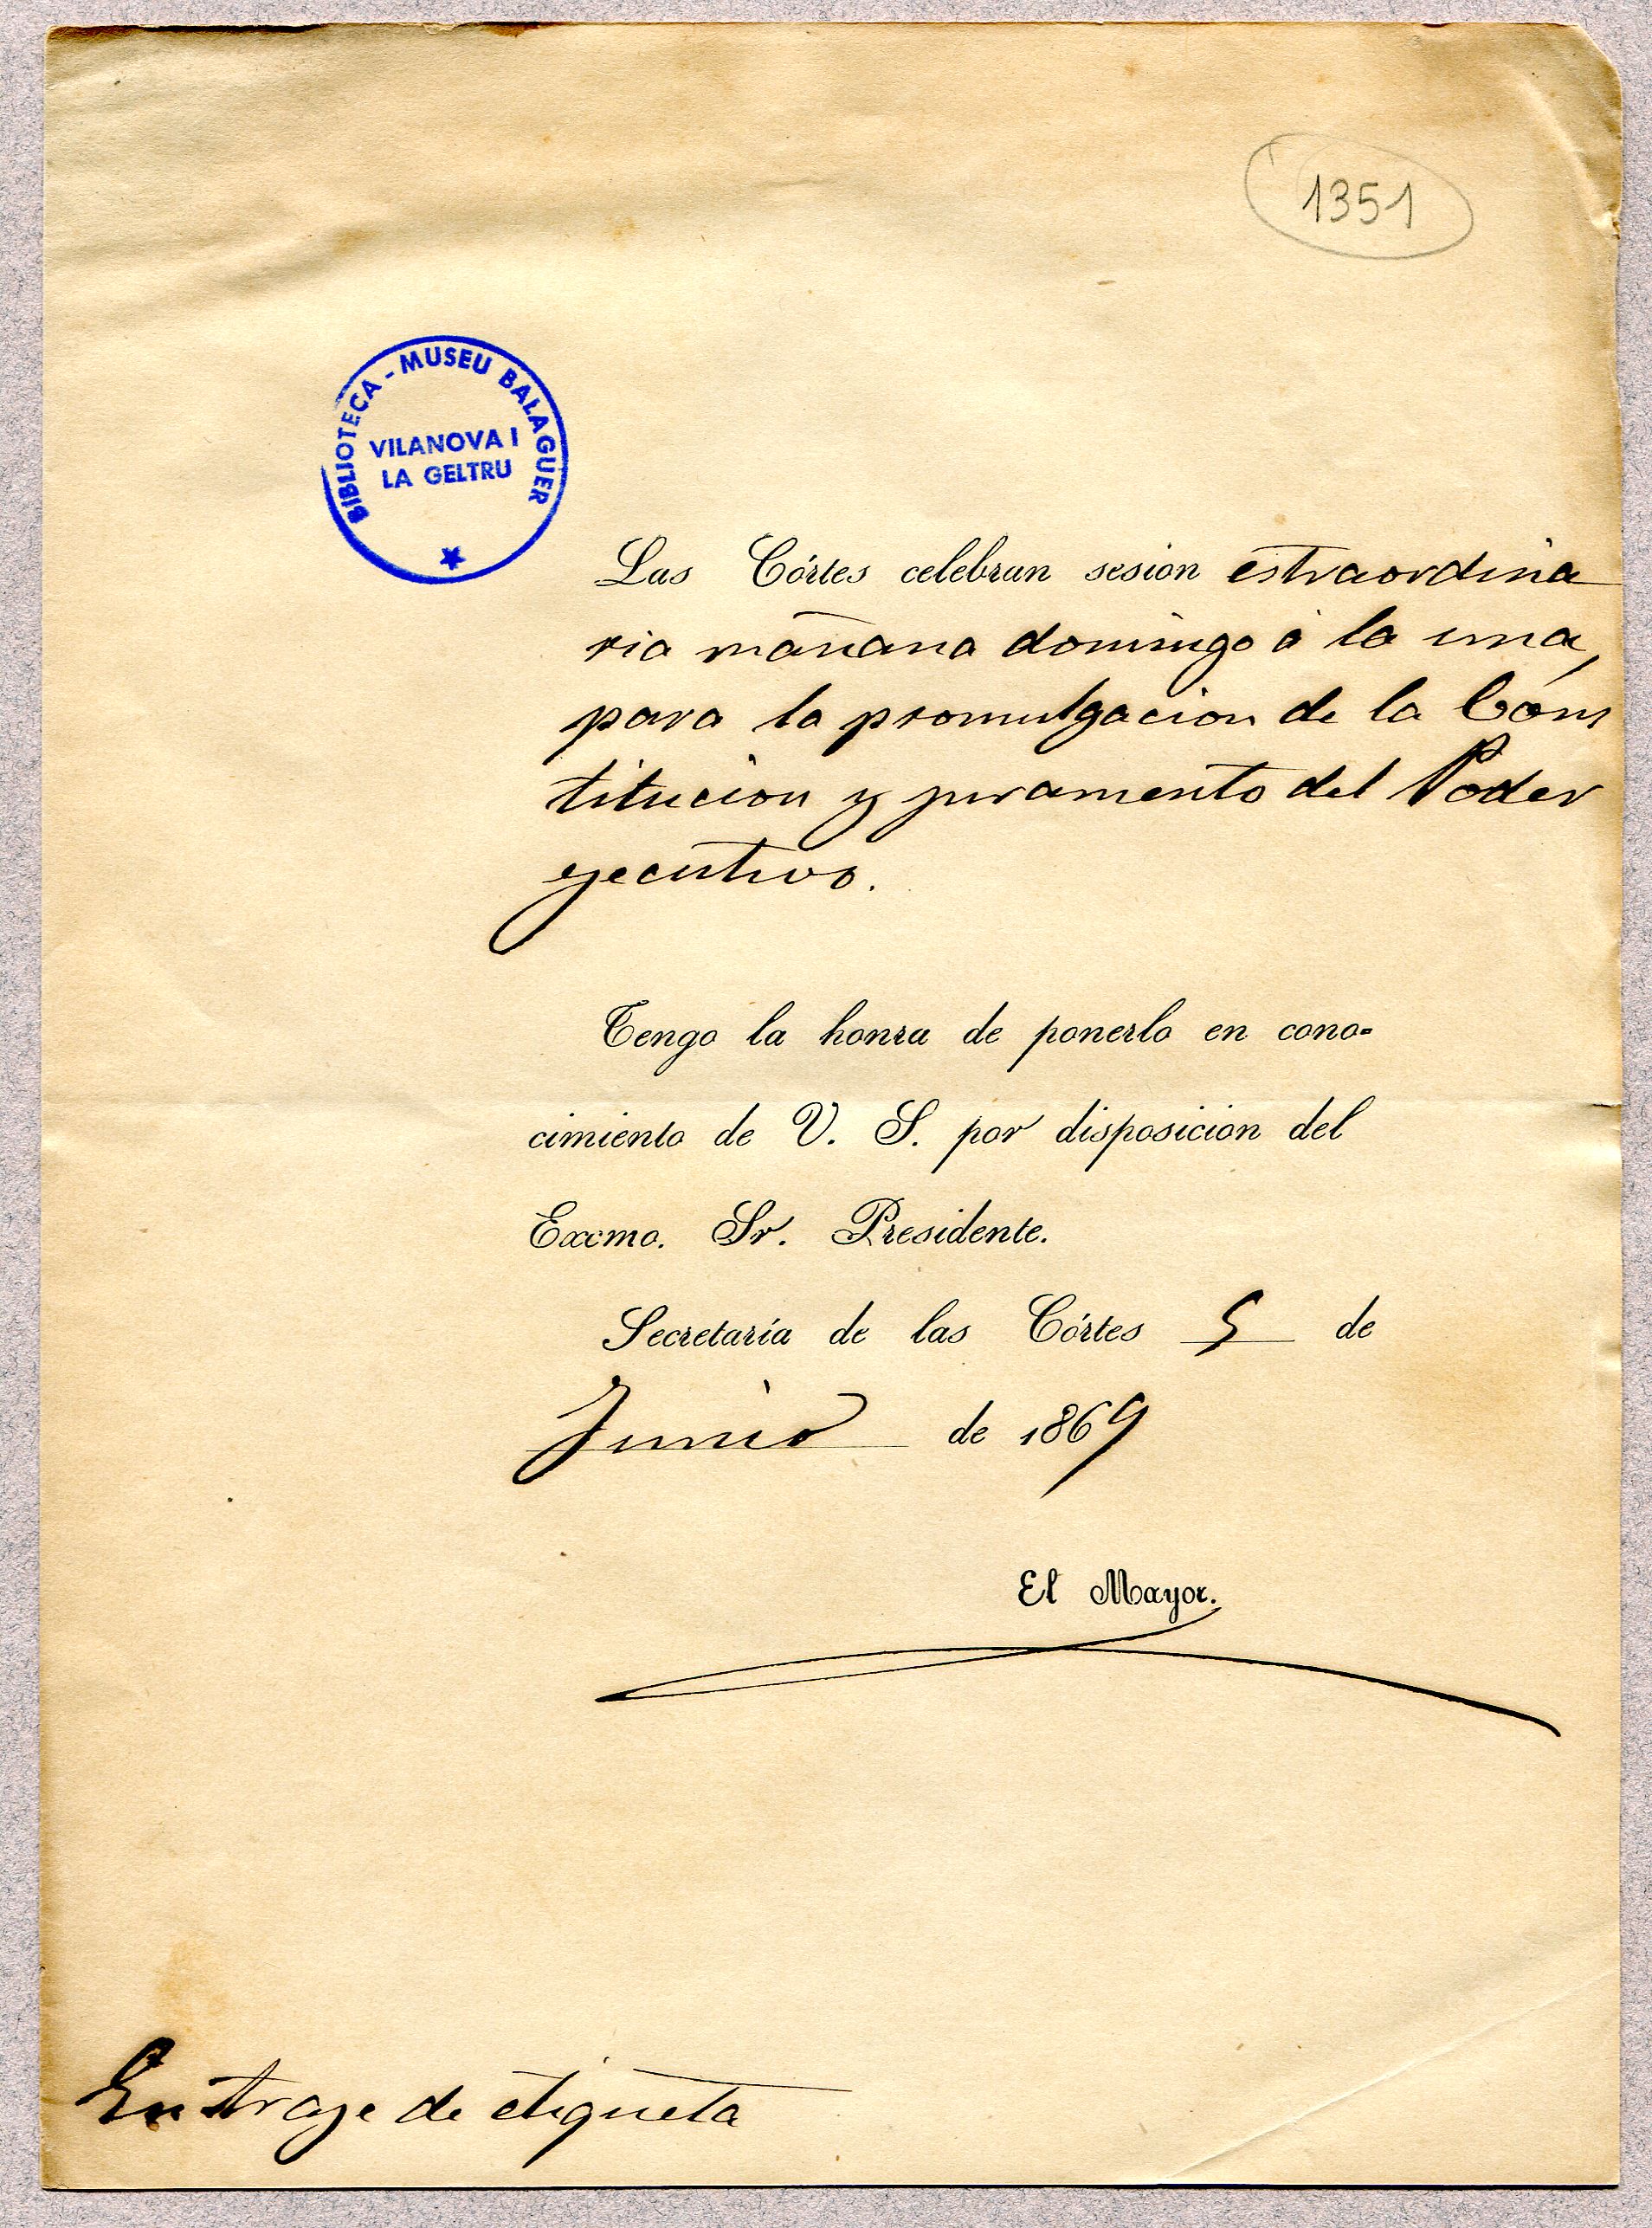 1351
BIBLIOTECA - MUSEU BALAGUER
VILANOVA I
LA GELTRU
Las Córtes celebran sesion estraordina
ria mañana domingo á la una,
para la promulgacion de la Cons
titucion y juramento del Poder
ejecutivo.
Tengo la honra de ponerlo en cono-
cimiento de V. S. por disposicion del
Excmo. Sr. Presidente.
Secretaría de las Córtes 5 de
Junio de 1869
El Mayor.
En traje de etiqueta